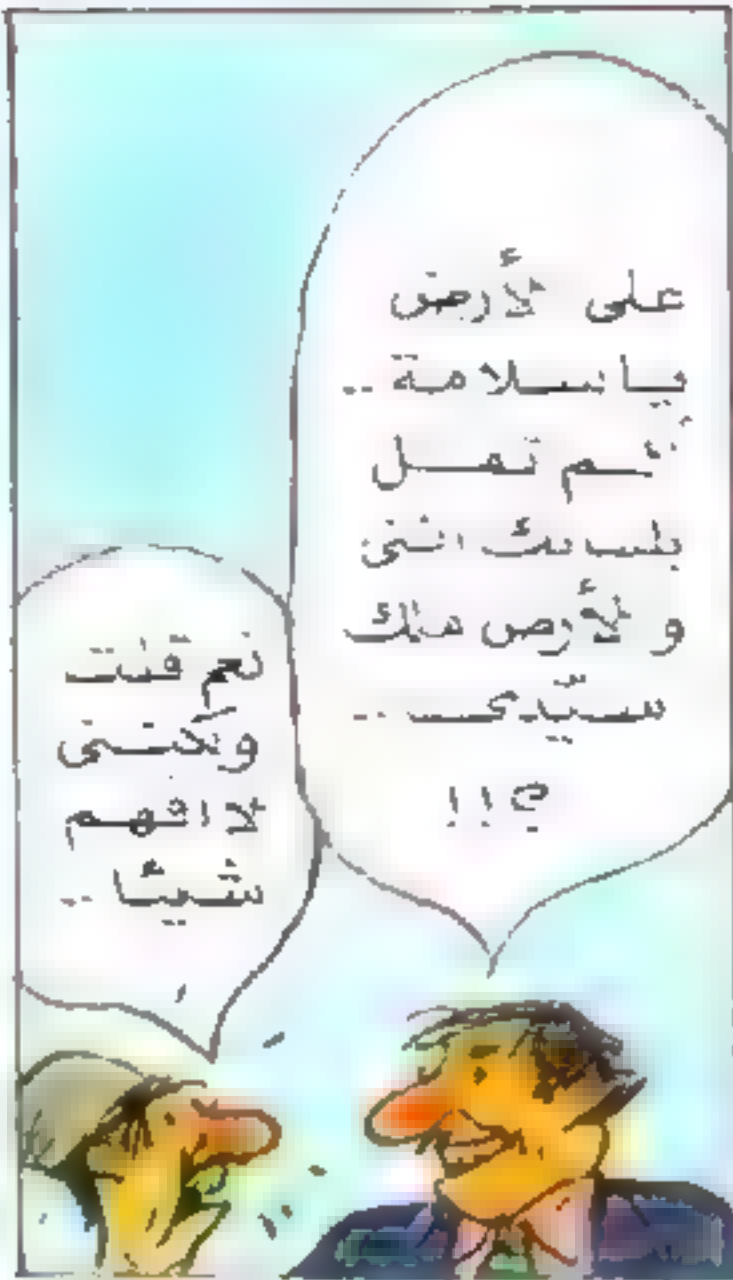 على الأرض
يا سلامة ..
ألم تقل
بلسانك اننى
والأرض ملك
سيّدى ..
؟!!
نعم قلت
ولكننى
لا افهم
شيئا ..